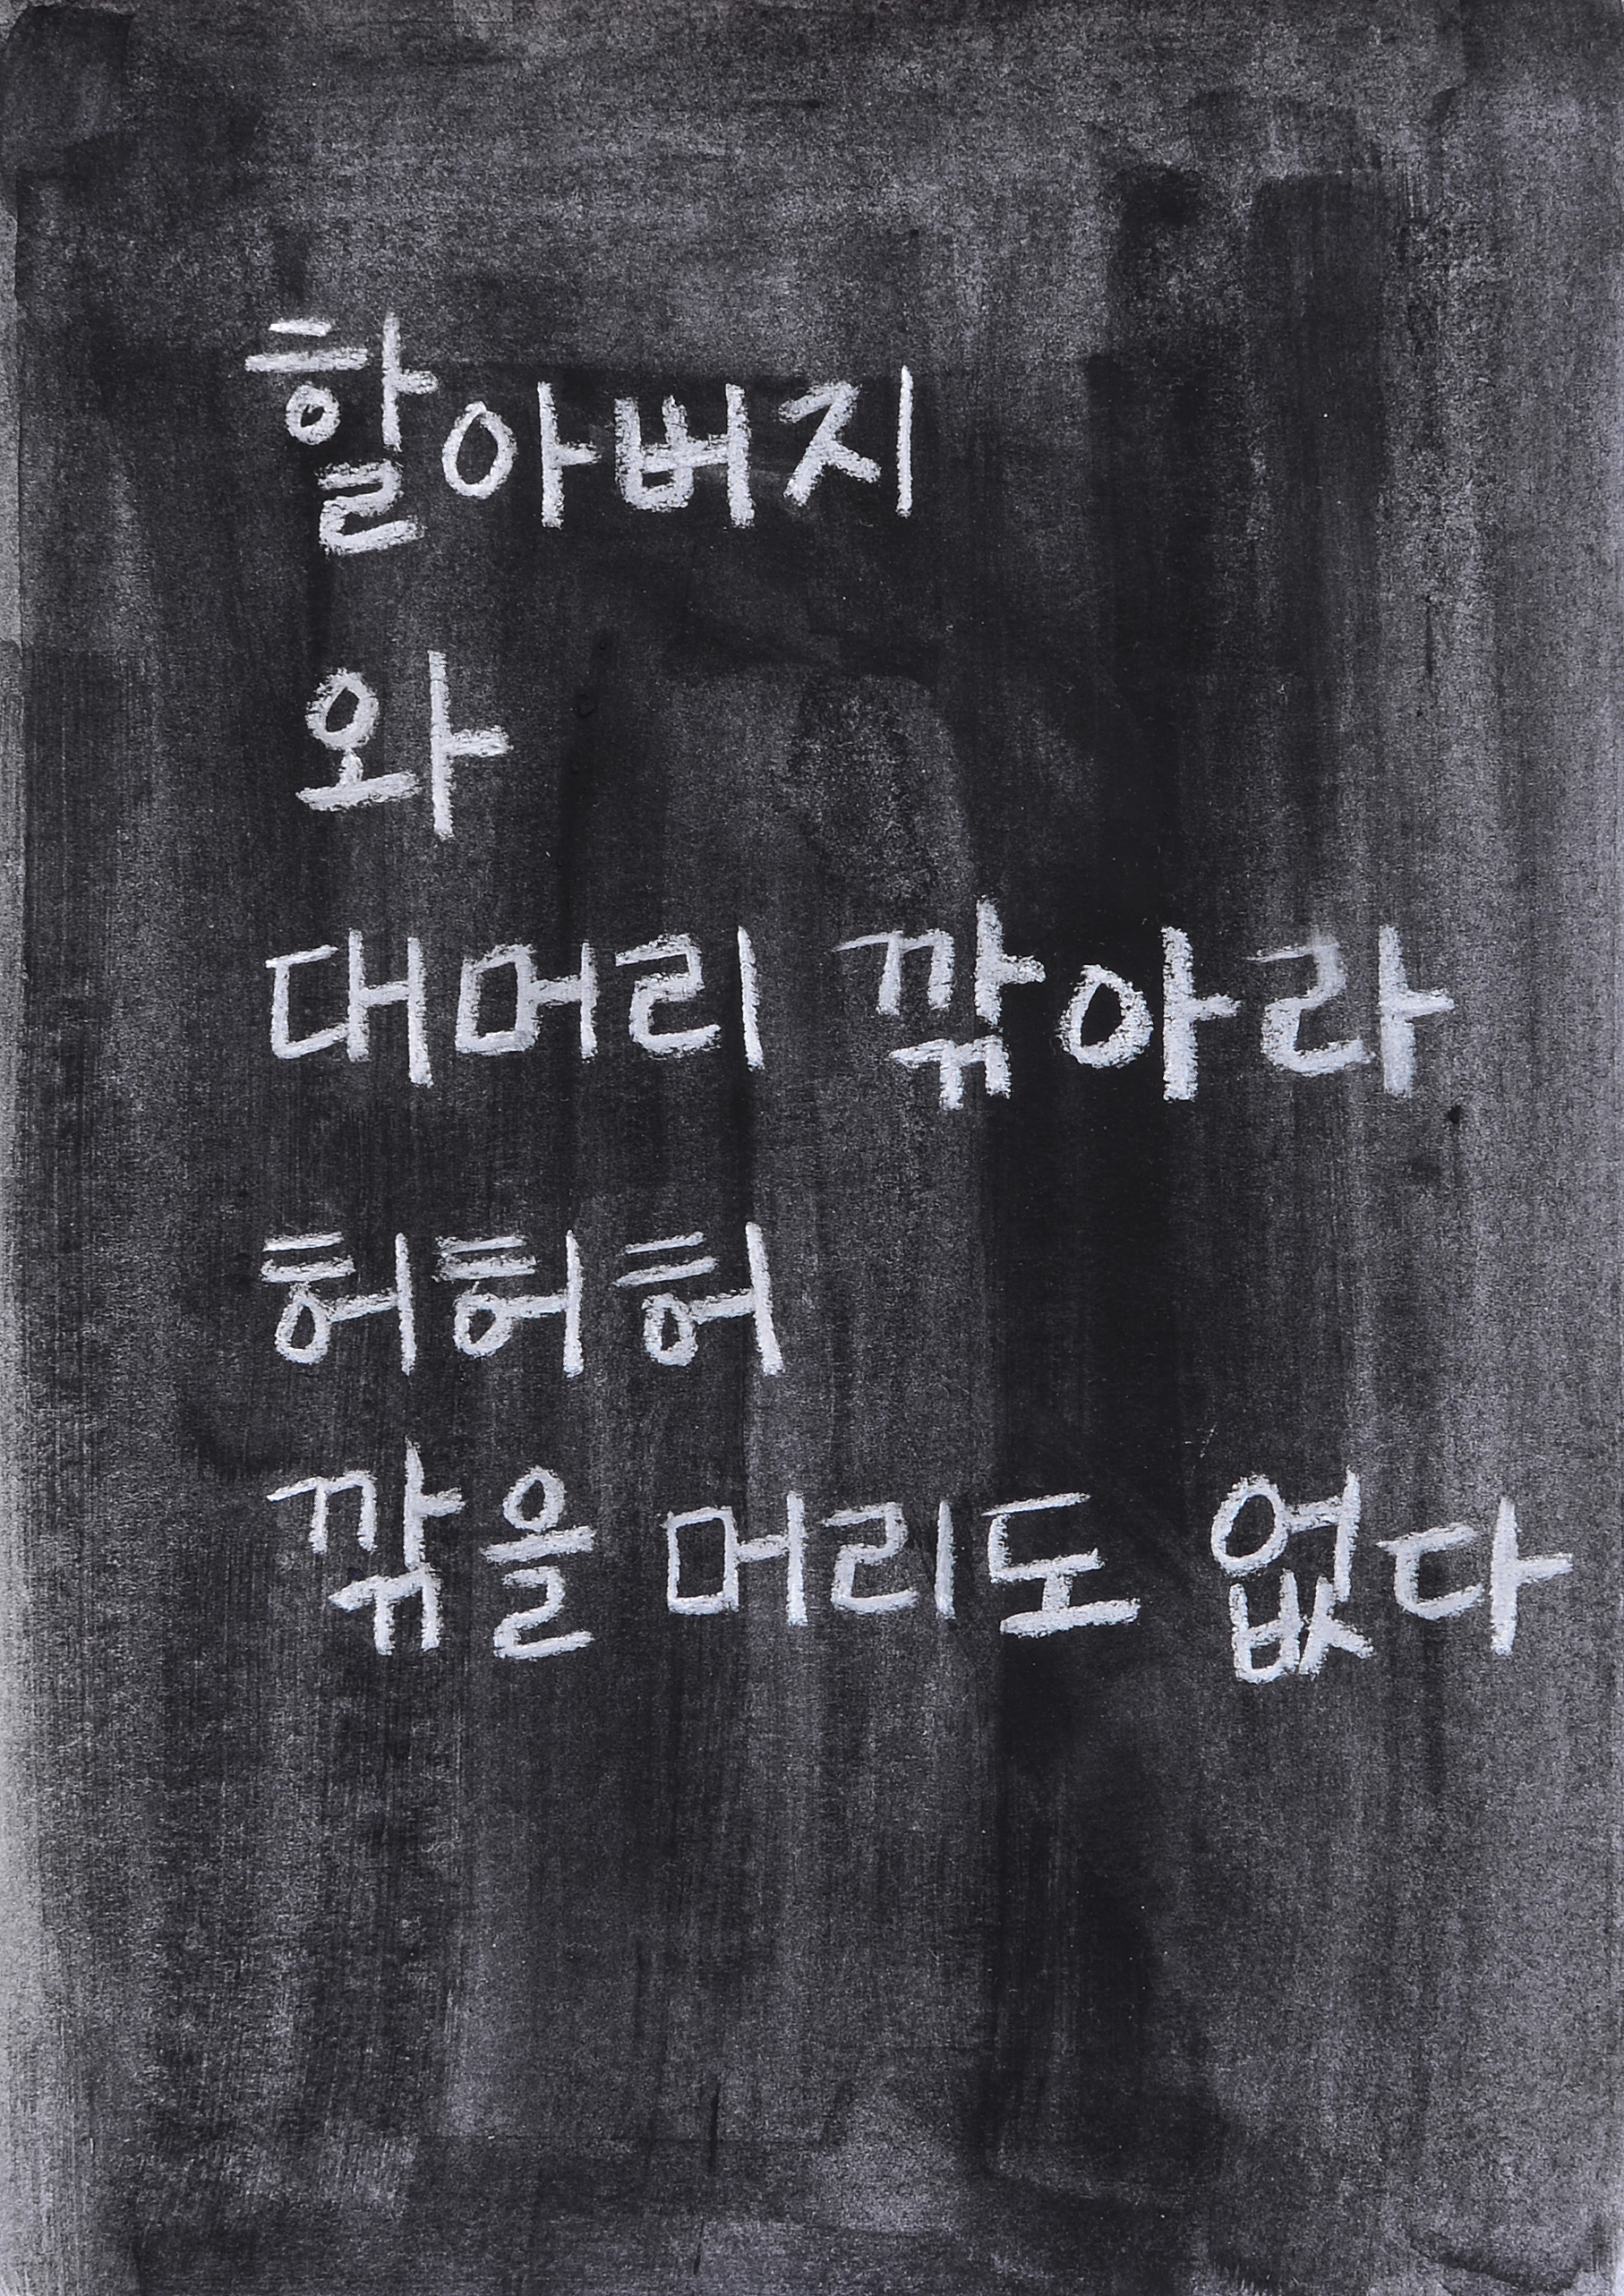 할아버지
와
대머리 깎아라
허허허
깎을 머리도 없다